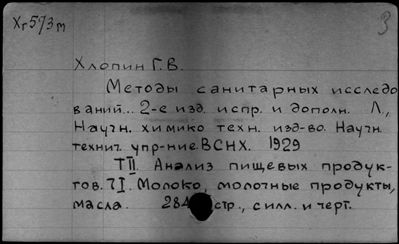 Хг573м
3
Хлопин Г. В.
Методы санитарных исследо
ваний... 2-е изд. испр. и дополн. Л,
Научн. химико техн. изд-во. Научн.
технич. упр-ние ВСНХ. 1929
Т II. Анализ пищевых продук-
тов. 7 I. Молоко, молочные продукты,
масла. 284 стр., с илл. и черт.